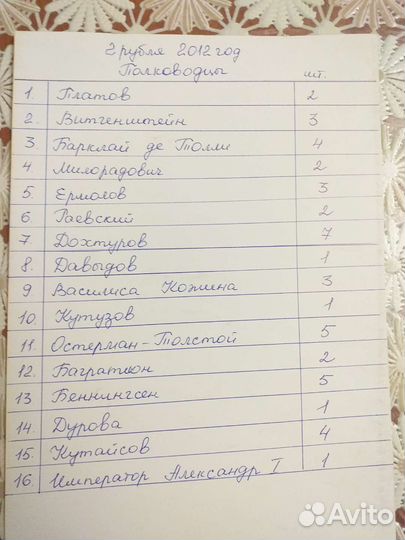 2 рубля 2012 год
Полководцы шт.
1. Платов 2
2. Витгенштейн 3
3 Барклай де Толли 4
4 Милорадович 2
5. Ермолов 3
6 Раевский 2
7. Дохтуров 7
8. Давыдов 1
9 Василиса Кожина 3
10. Кутузов 1
11. Остерман-Толстой 5
12. Багратион 2
13 Беннингсен 5
14. Дурова 1
15. Кутайсов 4
16. Император Александр I 1
Avito